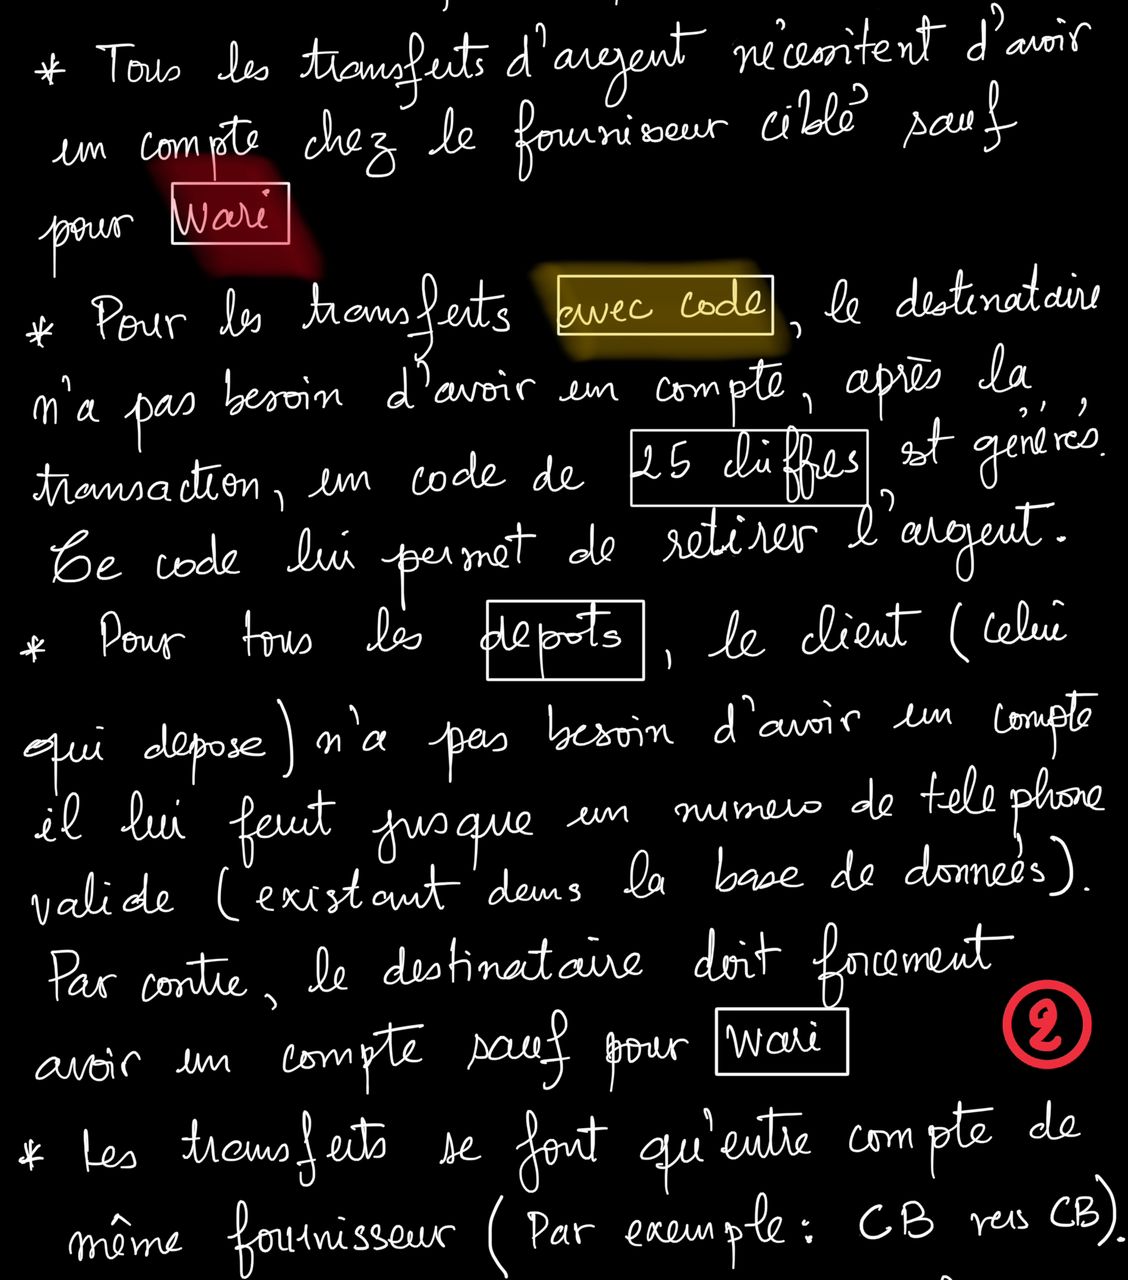 * Tous les transferts d'argent nécessitent d'avoir
un compte chez le fournisseur ciblé sauf
pour Wari
* Pour les transferts avec code, le destinataire
n'a pas besoin d'avoir un compte, après la
transaction, un code de 25 chiffres est générés.
Ce code lui permet de retirer l'argent.
* Pour tous les depots, le client (celui
qui depose) n'a pas besoin d'avoir un compte
il lui faut jusque un numero de telephone
valide (existant dans la base de donneés).
Par contre, le destinataire doit forcement
avoir un compte sauf pour Wari
2
* Les transferts se font qu'entre compte de
même fournisseur (Par exemple: CB vers CB).